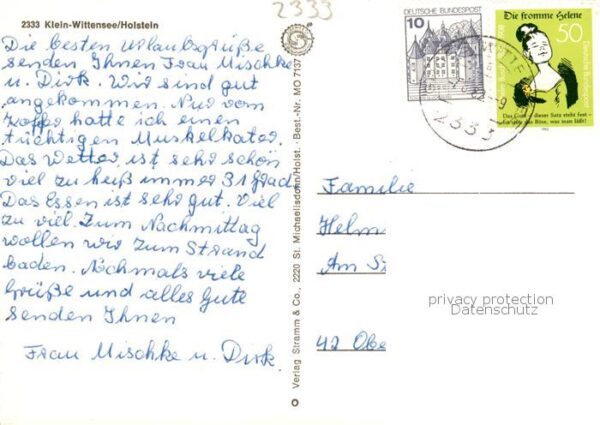 2333
2333 Klein-Wittensee/Holstein
Die besten Urlaubsgrüße
senden Ihnen Frau Mischke
u. Dirk. Wir sind gut
angekommen. Nur vom
Koffer hatte ich einen
tüchtigen Muskelkater.
Das Wetter ist sehr schön
viel zu heiß immer 31 Grad
Das Essen ist sehr gut. Viel
zu viel. Zum Nachmittag
wollen wir zum Strand
baden. Nochmals viele
Grüße und alles Gute
senden Ihnen
Frau Mischke u. Dirk.
Verlag Stramm & Co., 2220 St. Michaelisdonn/Holst. · Best.-Nr. MO 7137
DEUTSCHE BUNDESPOST
10
Die fromme Helene
50
Deutsche Bundespost
Das Gute – dieser Satz steht fest –
ist stets das Böse, was man läßt!
2333
Familie
Helm
Am
42 Obe
privacy protection
Datenschutz